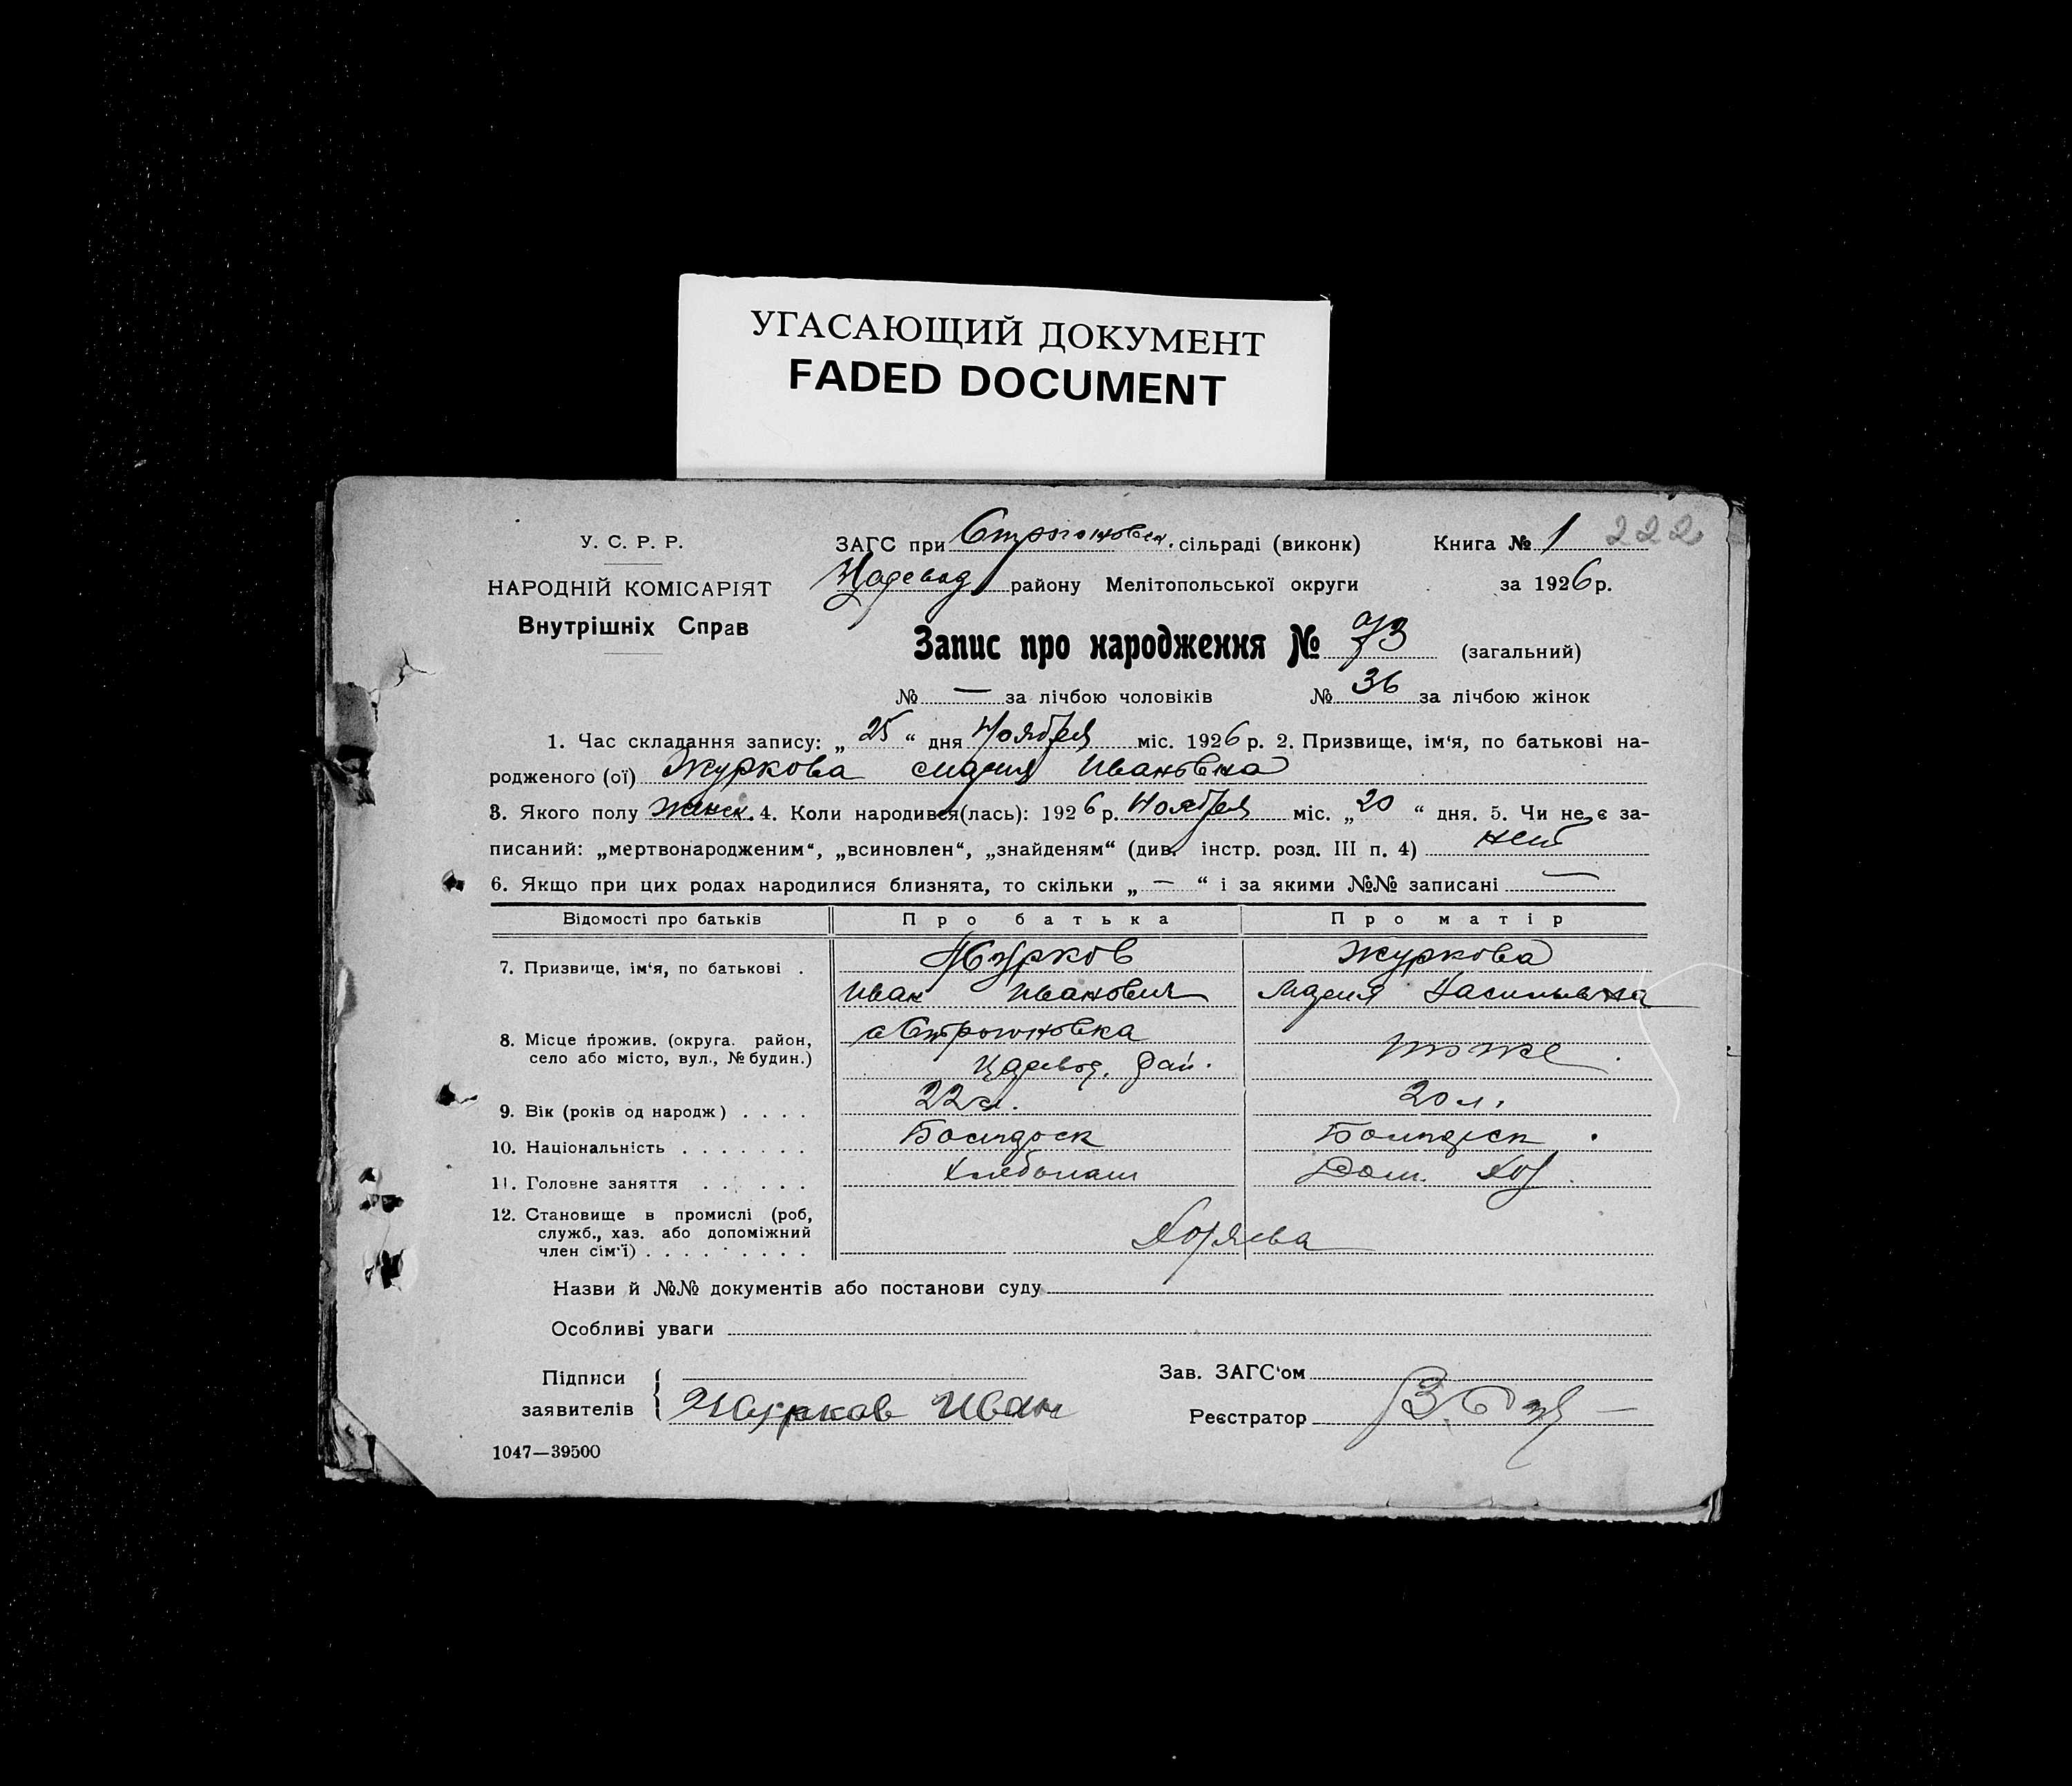 УГАСАЮЩИЙ ДОКУМЕНТ
FADED DOCUMENT
У. С. Р. Р.
НАРОДНІЙ КОМІСАРІЯТ
Внутрішніх Справ
ЗАГС при Строгоновск. сільраді (виконк)
Книга № 1 222
Царевод району Мелітопольської округи
за 1926 р.
Запис про народження № 73 (загальний)
№ — за лічбою чоловіків № 36 за лічбою жінок
1. Час складання запису: „ 25 “ дня Ноября міс. 1926 р. 2. Призвище, ім‘я, по батькові на-
родженого (ої) Журкова Мария Ивановна
3. Якого полу женск. 4. Коли народився(лась): 1926 р. Ноября міс. „ 20 “ дня. 5. Чи не є за-
писаний: „мертвонародженим“, „всиновлен“, „знайденям“ (див. інстр. розд. III п. 4) нет
6. Якщо при цих родах народилися близнята, то скільки „ — “ і за якими №№ записані —
Відомості про батьків Про батька Про матір
7. Призвище, ім‘я, по батькові . Журков Журкова
Иван Иванович Мария Васильевна
8. Місце прожив. (округа. район, село або місто, вул., № будин.) с Строгоновка
Царевод. рай. тоже
9. Вік (років од народж) . . . . 22 л. 20 л.
10. Національність . . . . . . . Болгарск Болгарск
11. Головне заняття . . . . . . Хлебопаш Дом. Хоз.
12. Становище в промислі (роб,
служб., хаз. або допоміжний
член сім‘ї) . . . . . . . . . Хозяева
Назви й №№ документів або постанови суду
Особливі уваги
Підписи
заявителів Журков Иван
Зав. ЗАГС‘ом
Реєстратор
1047—39500